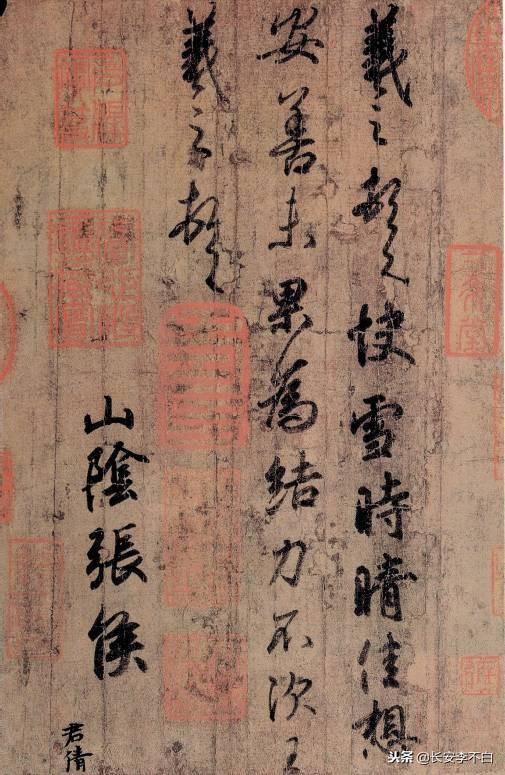 羲之頓首快雪時晴佳想
安善未果為結力不次王
羲之頓首
山陰張侯
君倩
头条 @长安李不白